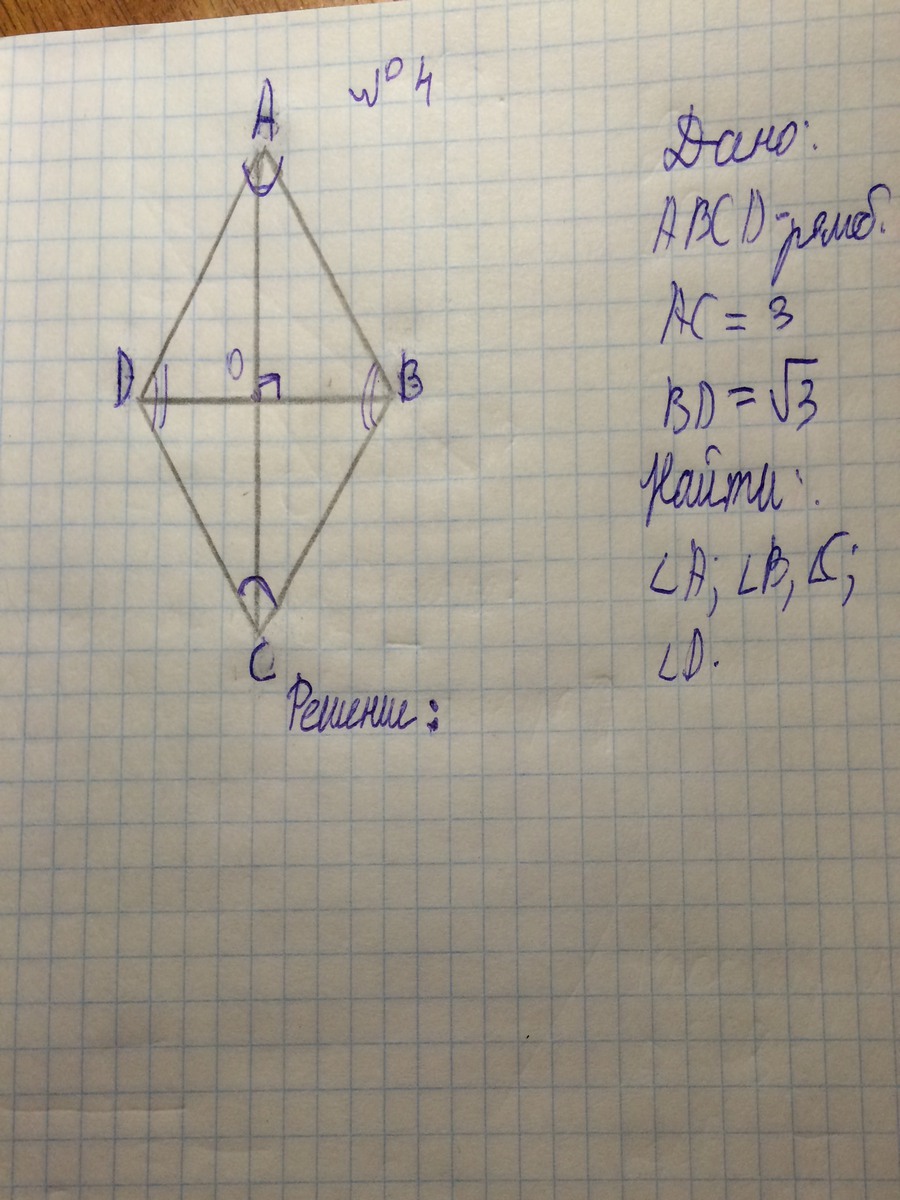 № 4
A
D
O
B
C
Дано:
ABCD - ромб.
AC = 3
BD = √3
Найти:
∠A; ∠B, ∠C;
∠D.
Решение: